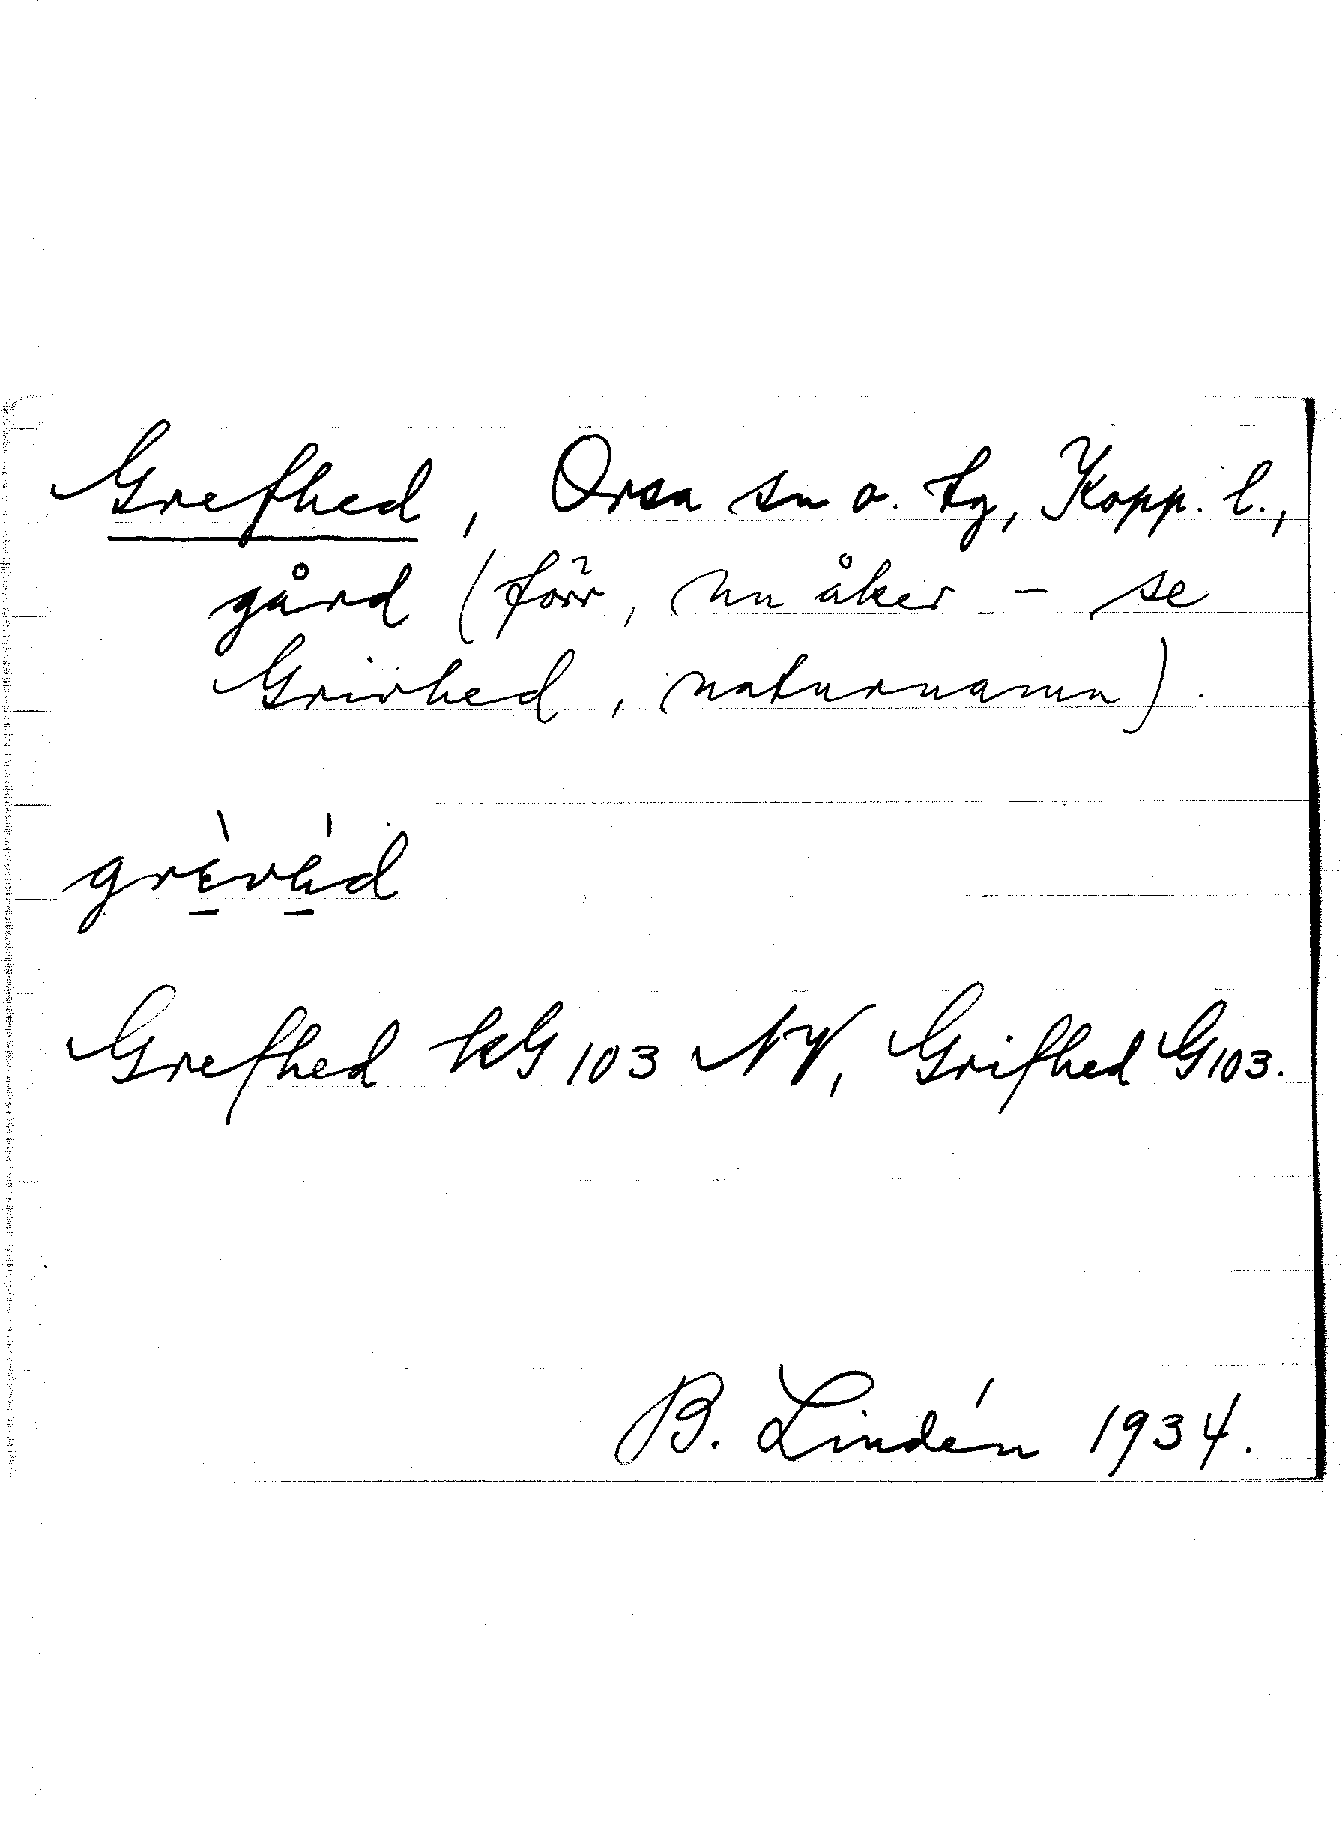 Grefhed, Orsa sn o. tg, Kopp. l.,
gård (förr, nu åker - se
Grivhed, naturnamn).
grèvéd
Grefhed kG 103 NV, Grifhed G103.
B. Lindén 1934.